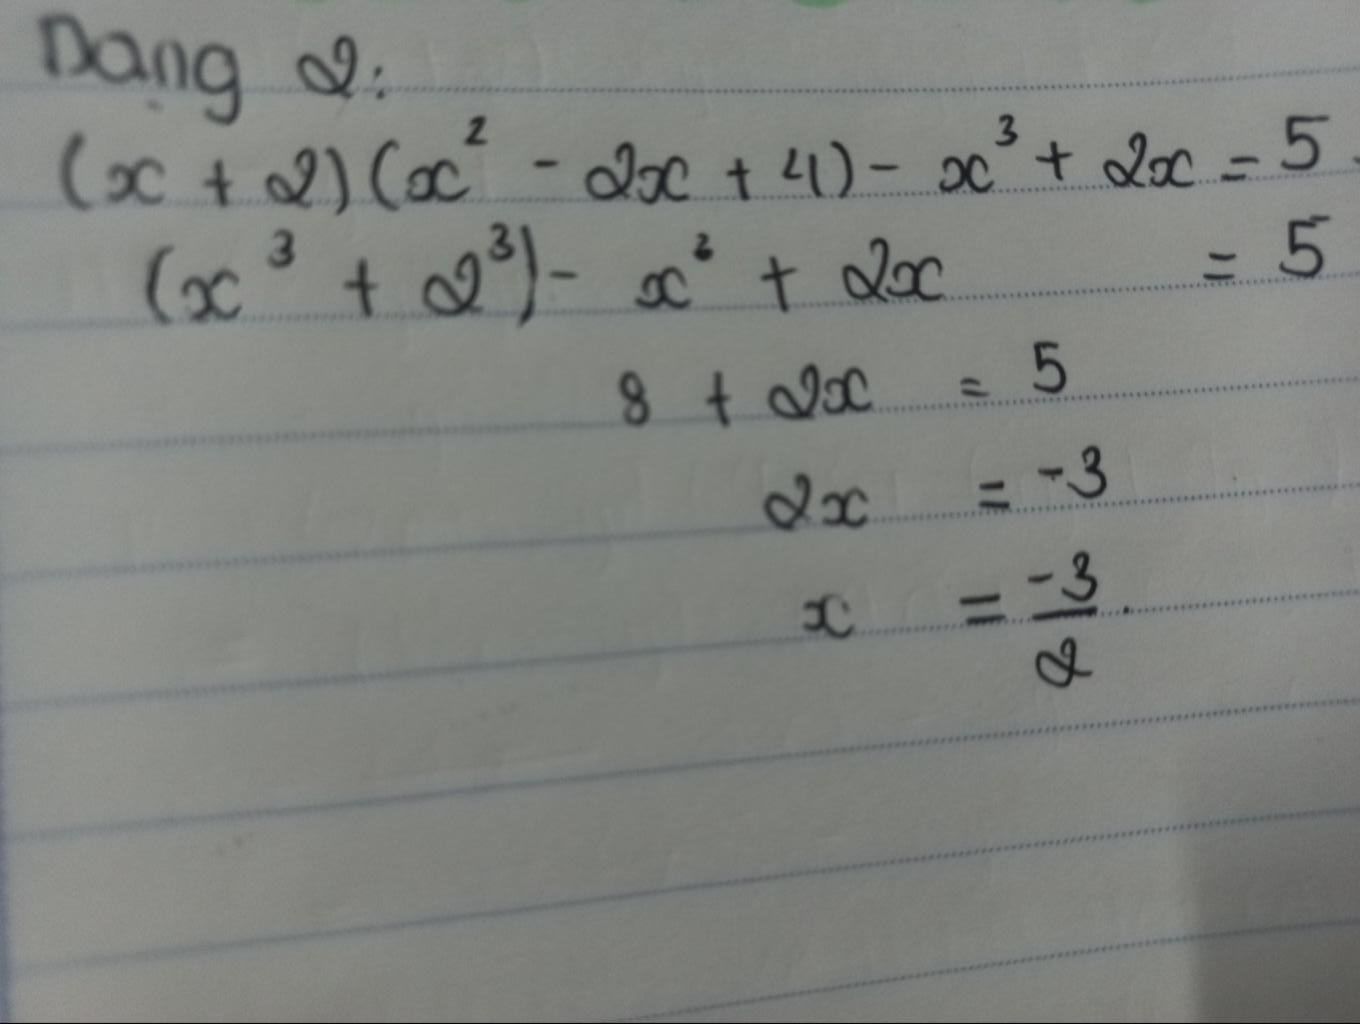 Dạng 2:
(x + 2)(x² - 2x + 4) - x³ + 2x = 5.
(x³ + 2³) - x² + 2x = 5
8 + 2x = 5
2x = -3
x = -3/2.